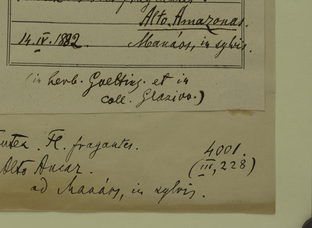 Alto Amazonas.
14.IV.1882 Manáos, in sylvis.
(in herb. Goetting. et in
coll. Glaziou.)
Fl. fragantes.
4001.
Alto Amaz. (III, 228)
ad Manáos, in sylvis.